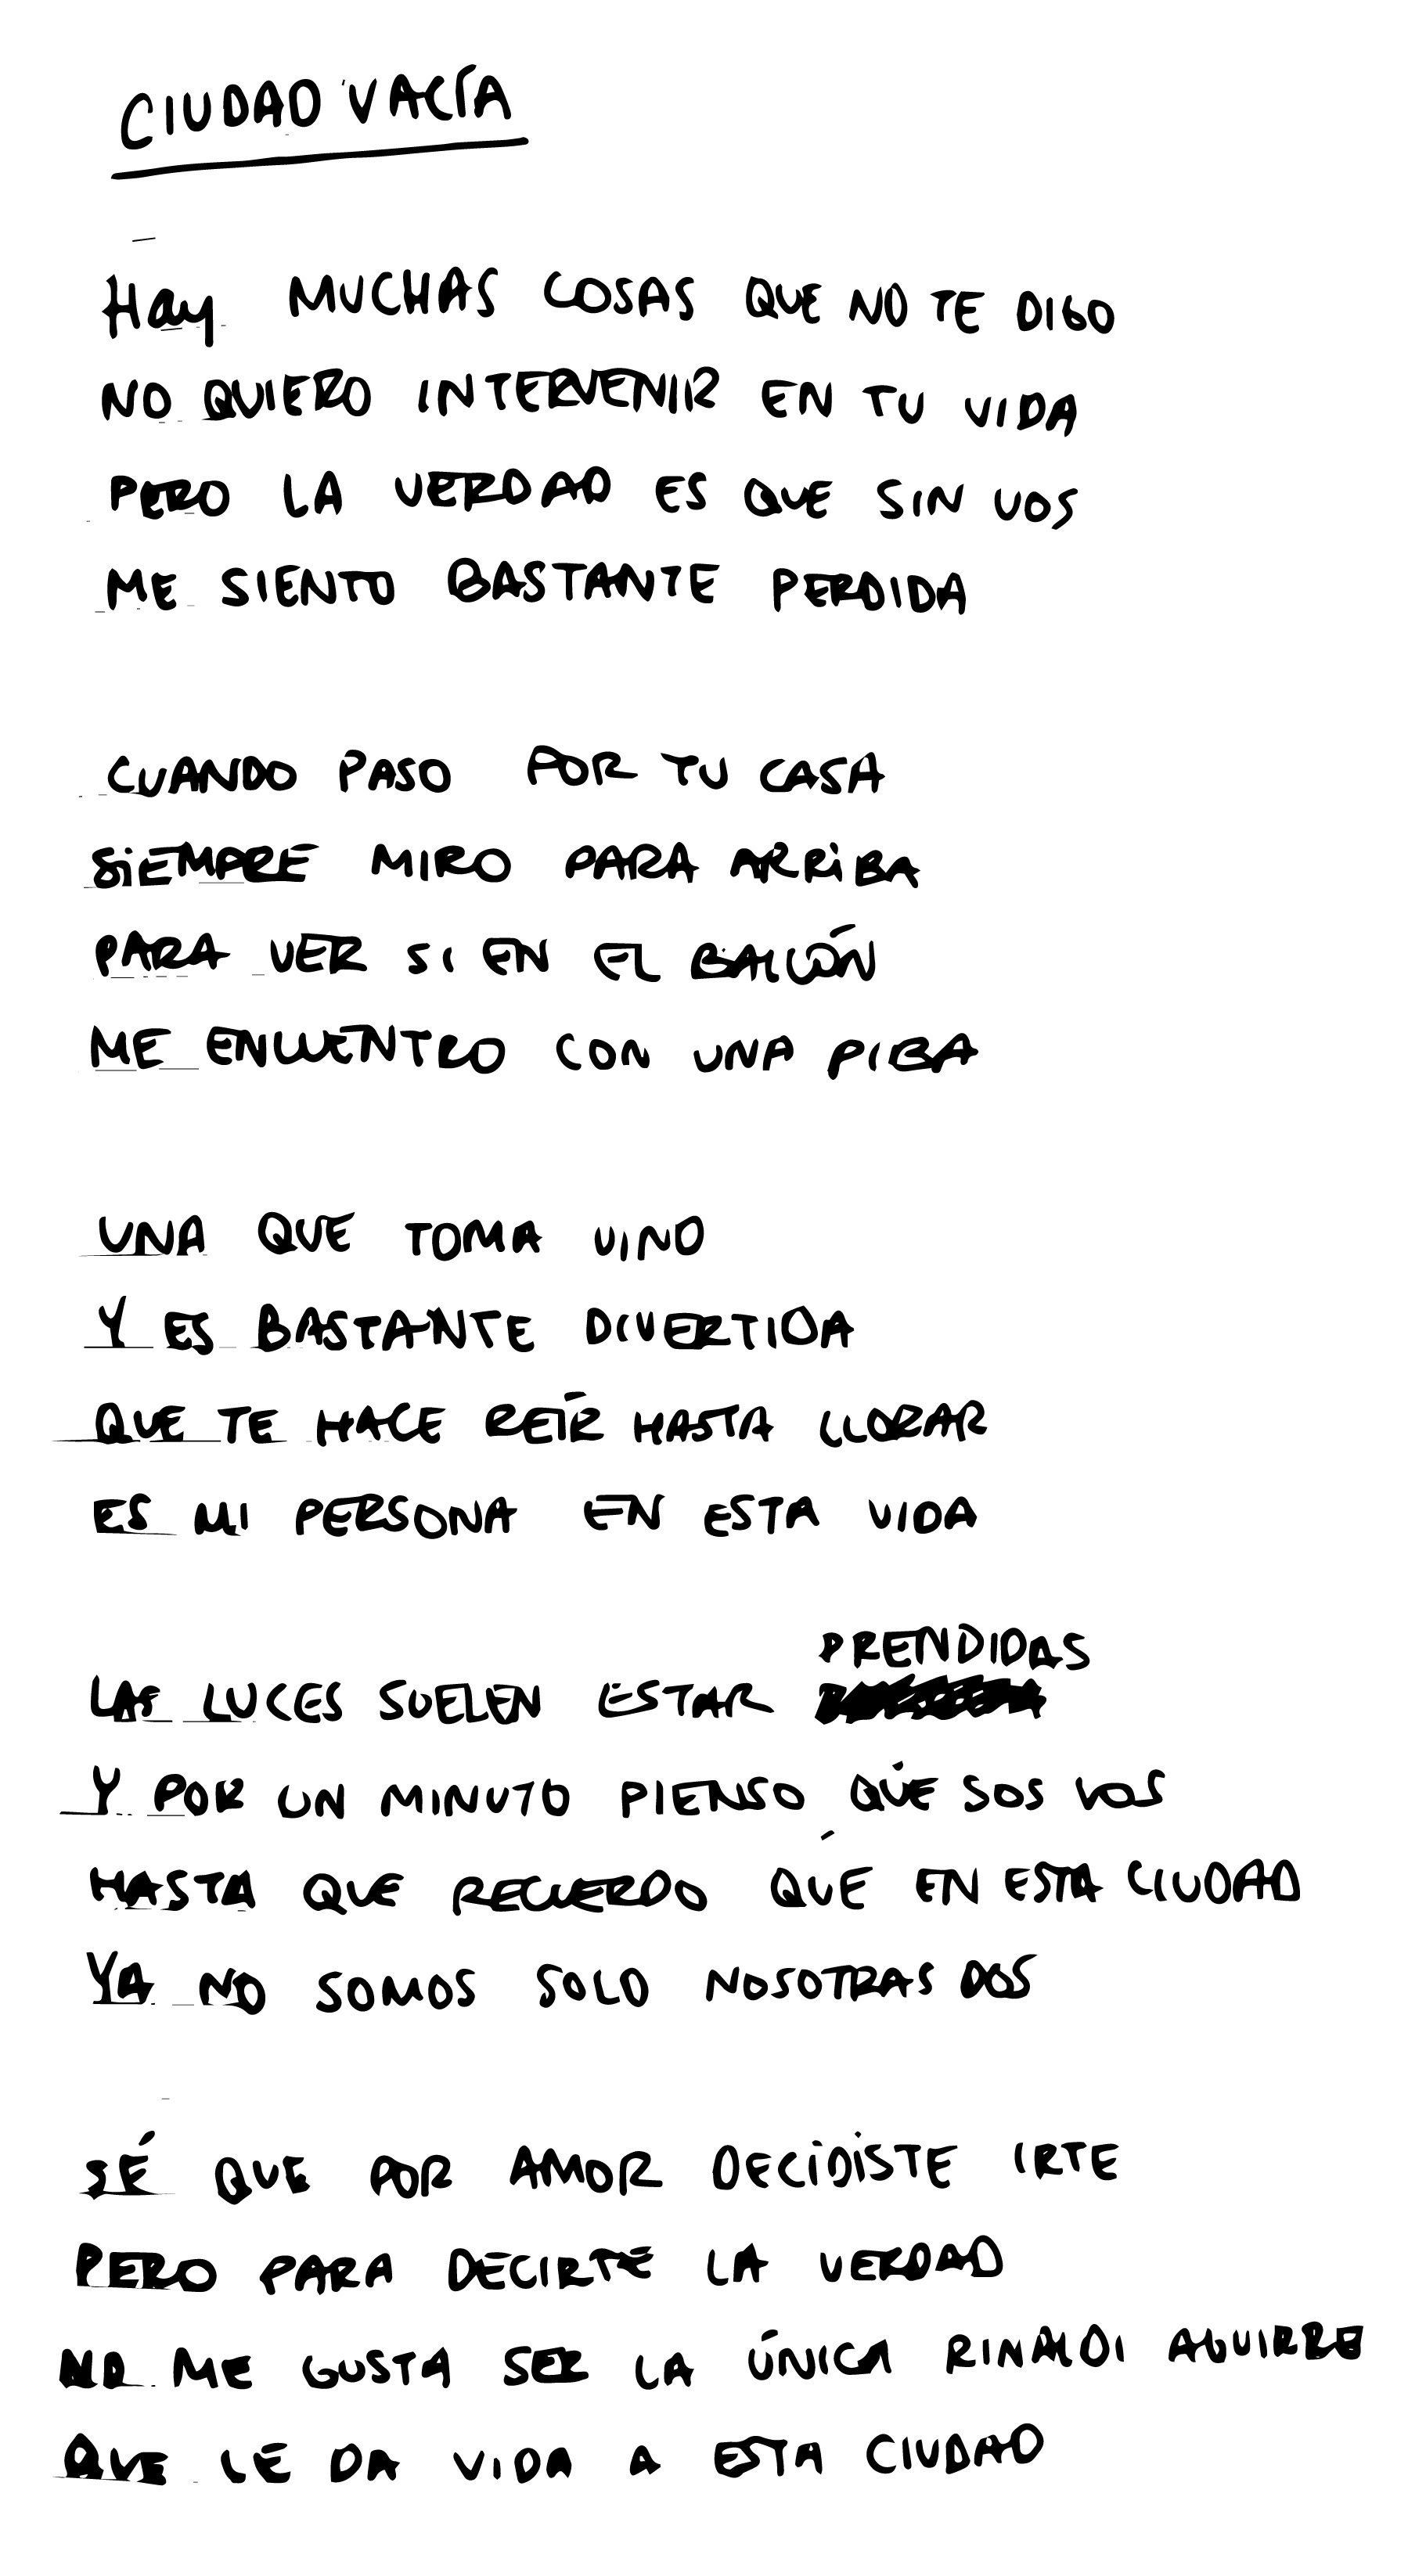 CIUDAD VACÍA
Hay MUCHAS COSAS QUE NO TE DIGO
NO QUIERO INTERVENIR EN TU VIDA
PERO LA VERDAD ES QUE SIN VOS
ME SIENTO BASTANTE PERDIDA
CUANDO PASO POR TU CASA
SIEMPRE MIRO PARA ARRIBA
PARA VER SI EN EL BALCÓN
ME ENCUENTRO CON UNA PIBA
UNA QUE TOMA VINO
Y ES BASTANTE DIVERTIDA
QUE TE HACE REÍR HASTA LLORAR
ES MI PERSONA EN ESTA VIDA
LAS LUCES SUELEN ESTAR PRENDIDAS
Y POR UN MINUTO PIENSO QUE SOS VOS
HASTA QUE RECUERDO QUE EN ESTA CIUDAD
YA NO SOMOS SOLO NOSOTRAS DOS
SÉ QUE POR AMOR DECIDISTE IRTE
PERO PARA DECIRTE LA VERDAD
NO ME GUSTA SER LA ÚNICA RINALDI AGUIRRE
QUE LE DA VIDA A ESTA CIUDAD